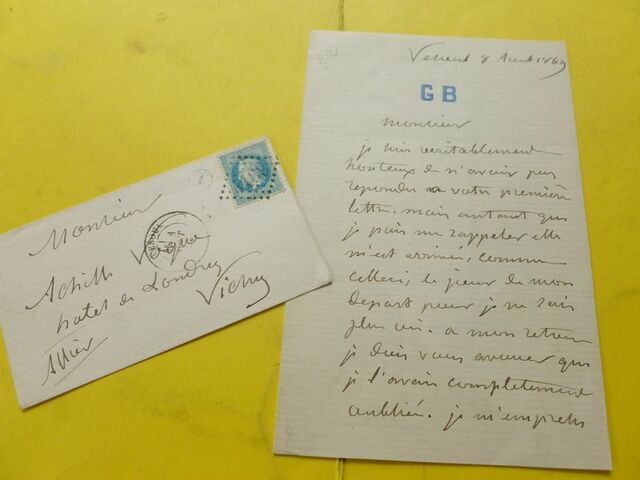 Monsieur
Achille
hotel de Londres
Vichy
Allier
8 Aout 1869
GB
monsieur
je suis veritablement
honteux de n'avoir pas
repondu a votre première
lettre. mais autant que
je puis me rappeler elle
m'est arrivée, comme
celleci, le jour de mon
depart pour je ne sais
plus où. a mon retour
je dois vous avouer que
je l'avais completement
oubliée. je m'empresse